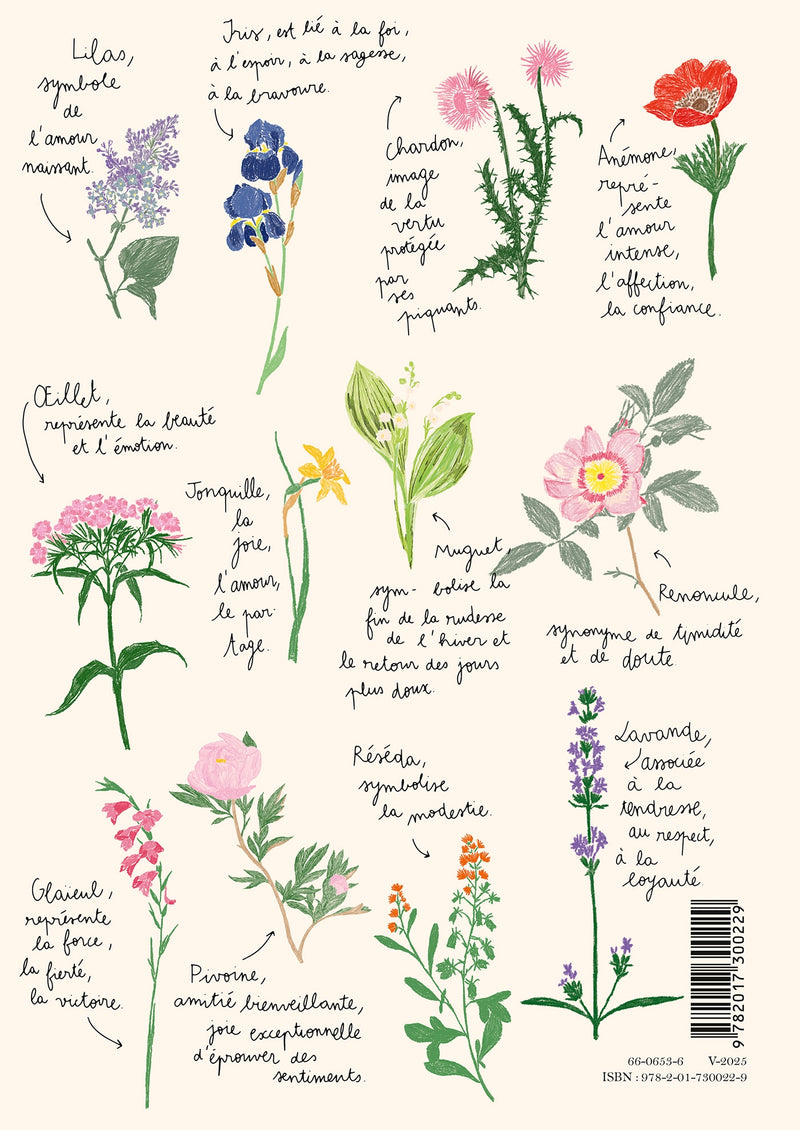 Lilas,
symbole
de
l'amour
naissant.
Iris, est lié à la foi,
à l'espoir, à la sagesse,
à la bravoure.
Chardon,
image
de la
vertu
protégée
par
ses
piquants.
Anémone,
repré-
sente
l'amour
intense,
l'affection,
la confiance.
Œillet,
représente la beauté
et l'émotion.
Jonquille,
la
joie,
l'amour,
le par-
tage.
Muguet,
sym- bolise la
fin de la rudesse
de l'hiver et
le retour des jours
plus doux.
Renoncule,
synonyme de timidité
et de doute.
Glaïeul,
représente
la force,
la fierté,
la victoire.
Pivoine,
amitié bienveillante,
joie exceptionnelle
d'éprouver des
sentiments.
Réséda,
symbolise
la modestie.
Lavande,
associée
à la
tendresse,
au respect,
à la
loyauté.
9 782017 300229
66-0653-6 V-2025
ISBN : 978-2-01-730022-9